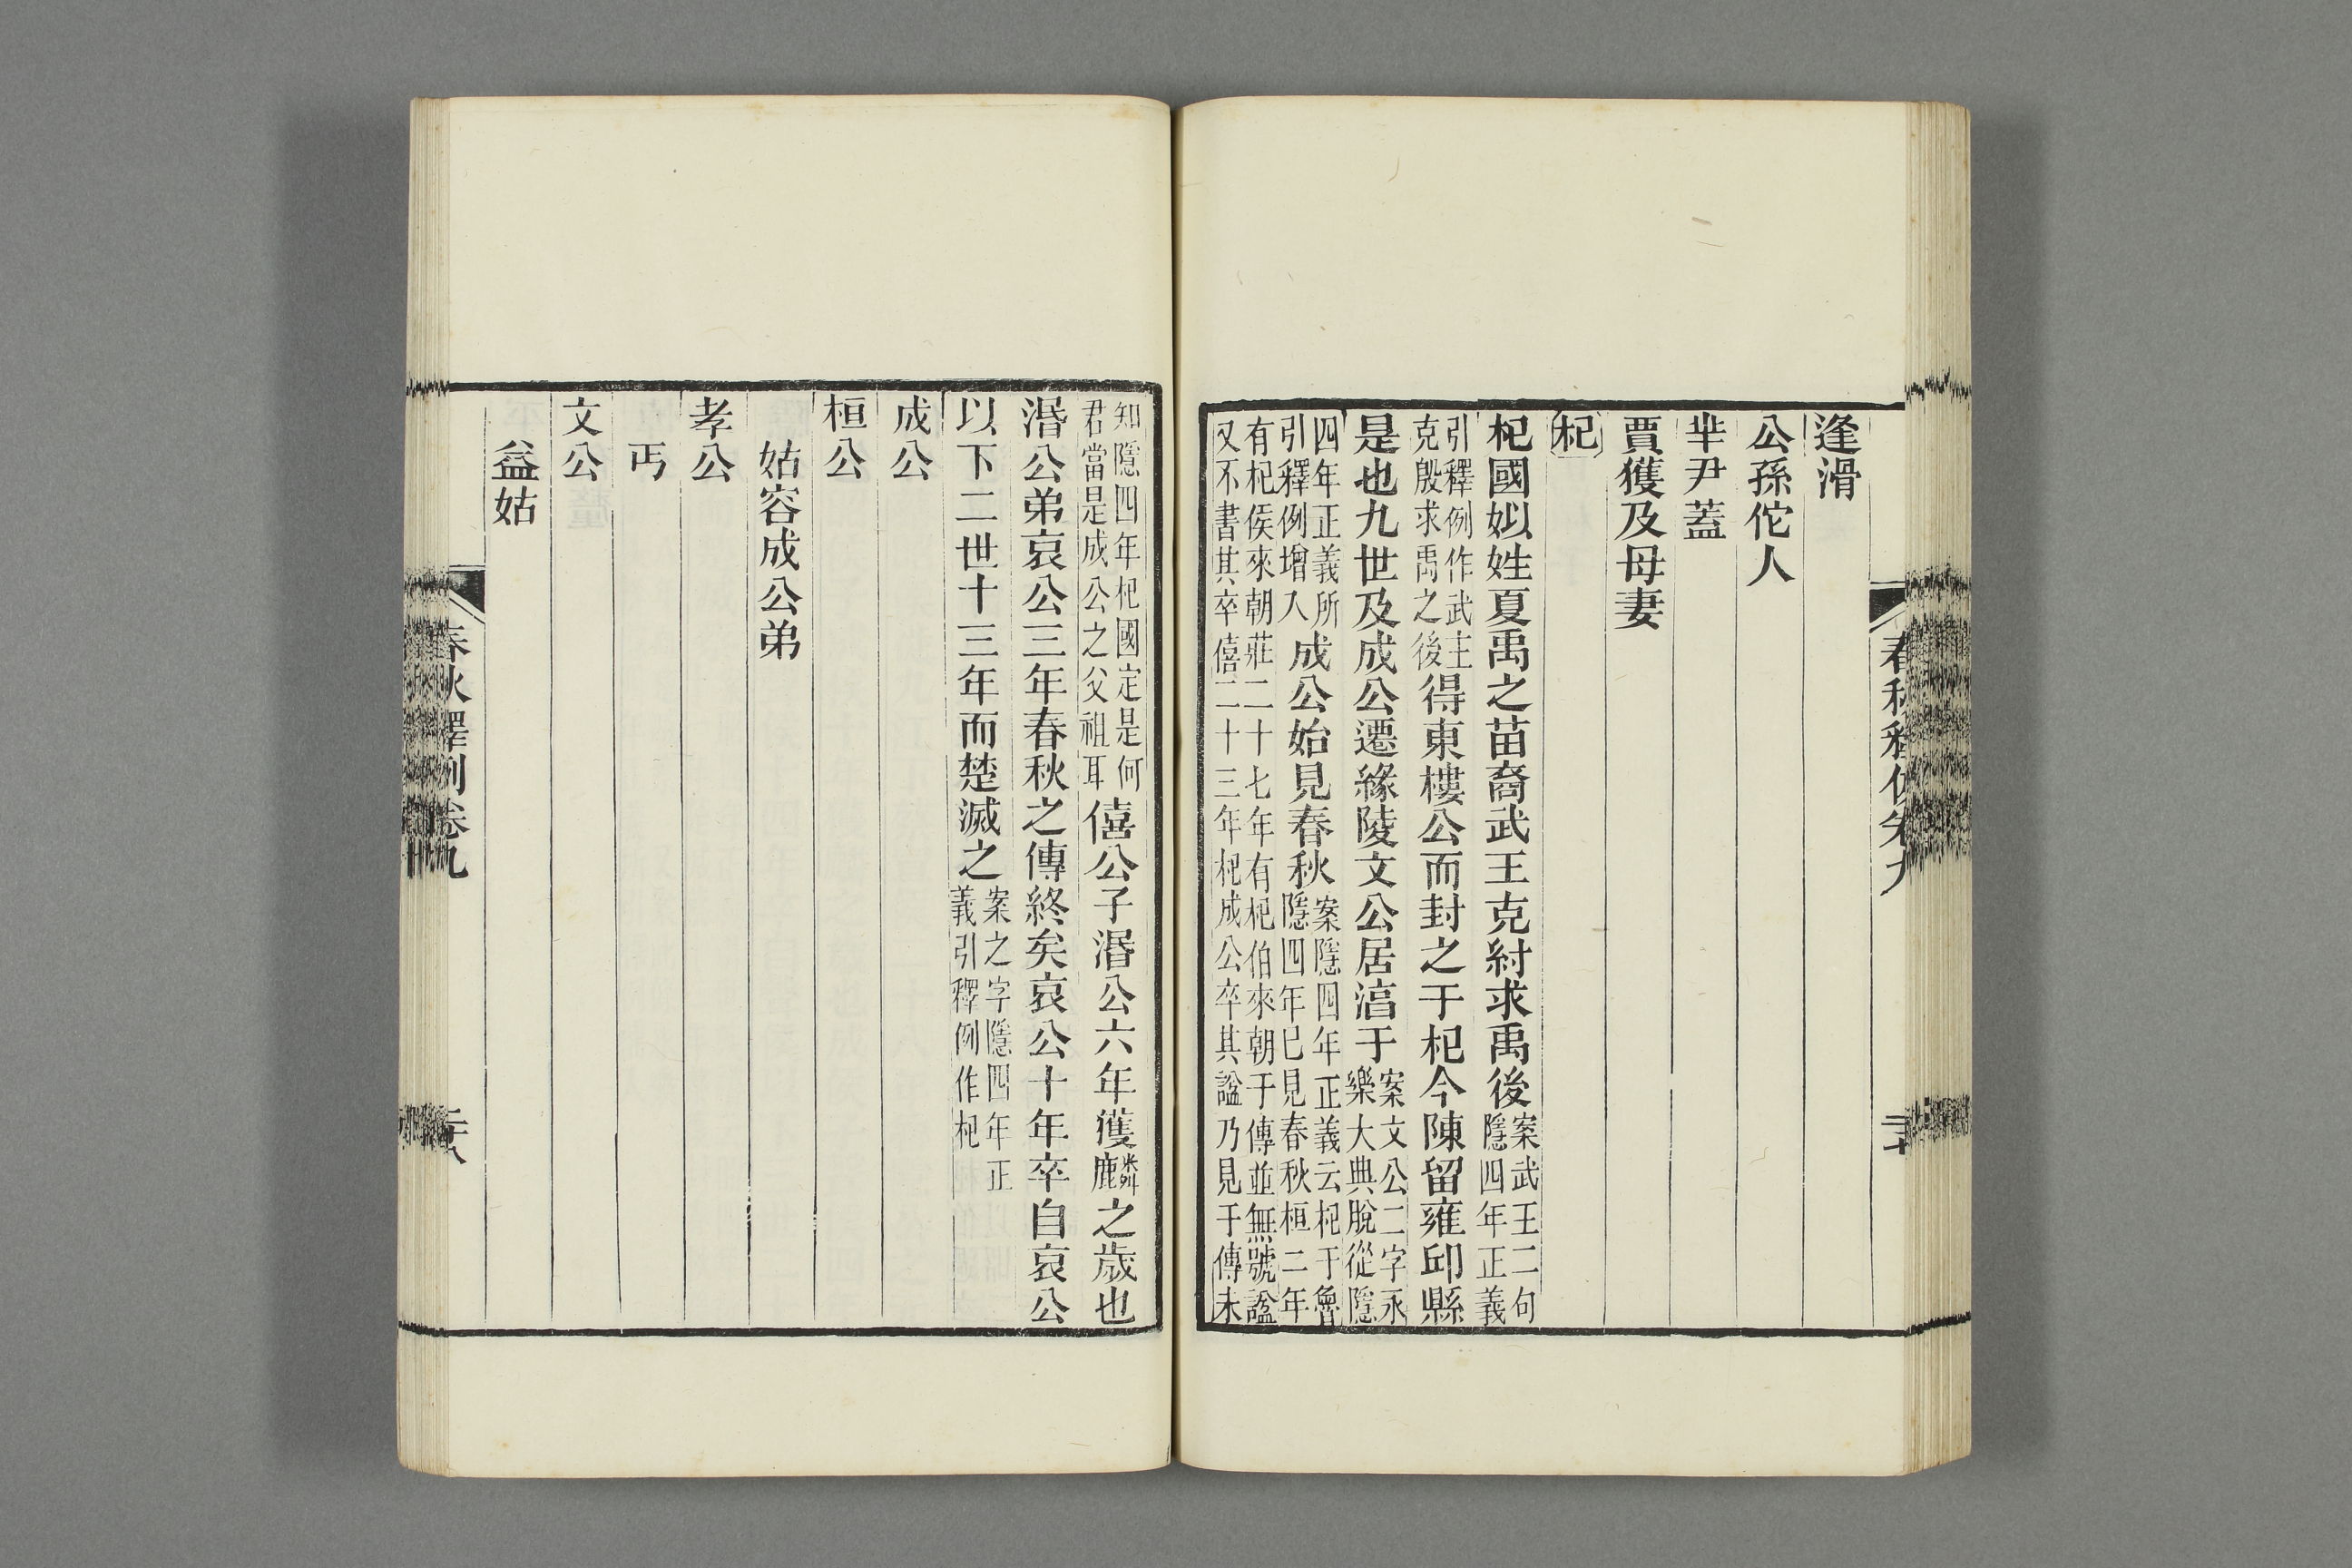 逢滑
公孫佗人
芈尹蓋
賈獲及母妻
杞
杞國姒姓夏禹之苗裔武王克紂求禹後案武王二句隱四年正義
引釋例作武王克殷求禹之後得東樓公而封之于杞今陳留雍邱縣
是也九世及成公遷緣陵文公居湻于案文公二字永樂大典脫從隱
四年正義所引釋例增入成公始見春秋案隱四年正義云杞于魯隱四年巳見春秋桓二年
有杞侯來朝莊二十七年有杞伯來朝于傳並無號諡又不書其卒僖二十三年杞成公卒其諡乃見于傳未
春秋釋例卷九
知隱四年杞國定是何君當是成公之父祖耳僖公子湣公六年獲麟之歲也
湣公弟哀公三年春秋之傳終矣哀公十年卒自哀公
以下二世十三年而楚滅之案之字隱四年正義引釋例作杞
成公
桓公
姑容成公弟
孝公
丐
文公
益姑
春秋釋例卷九
二十八